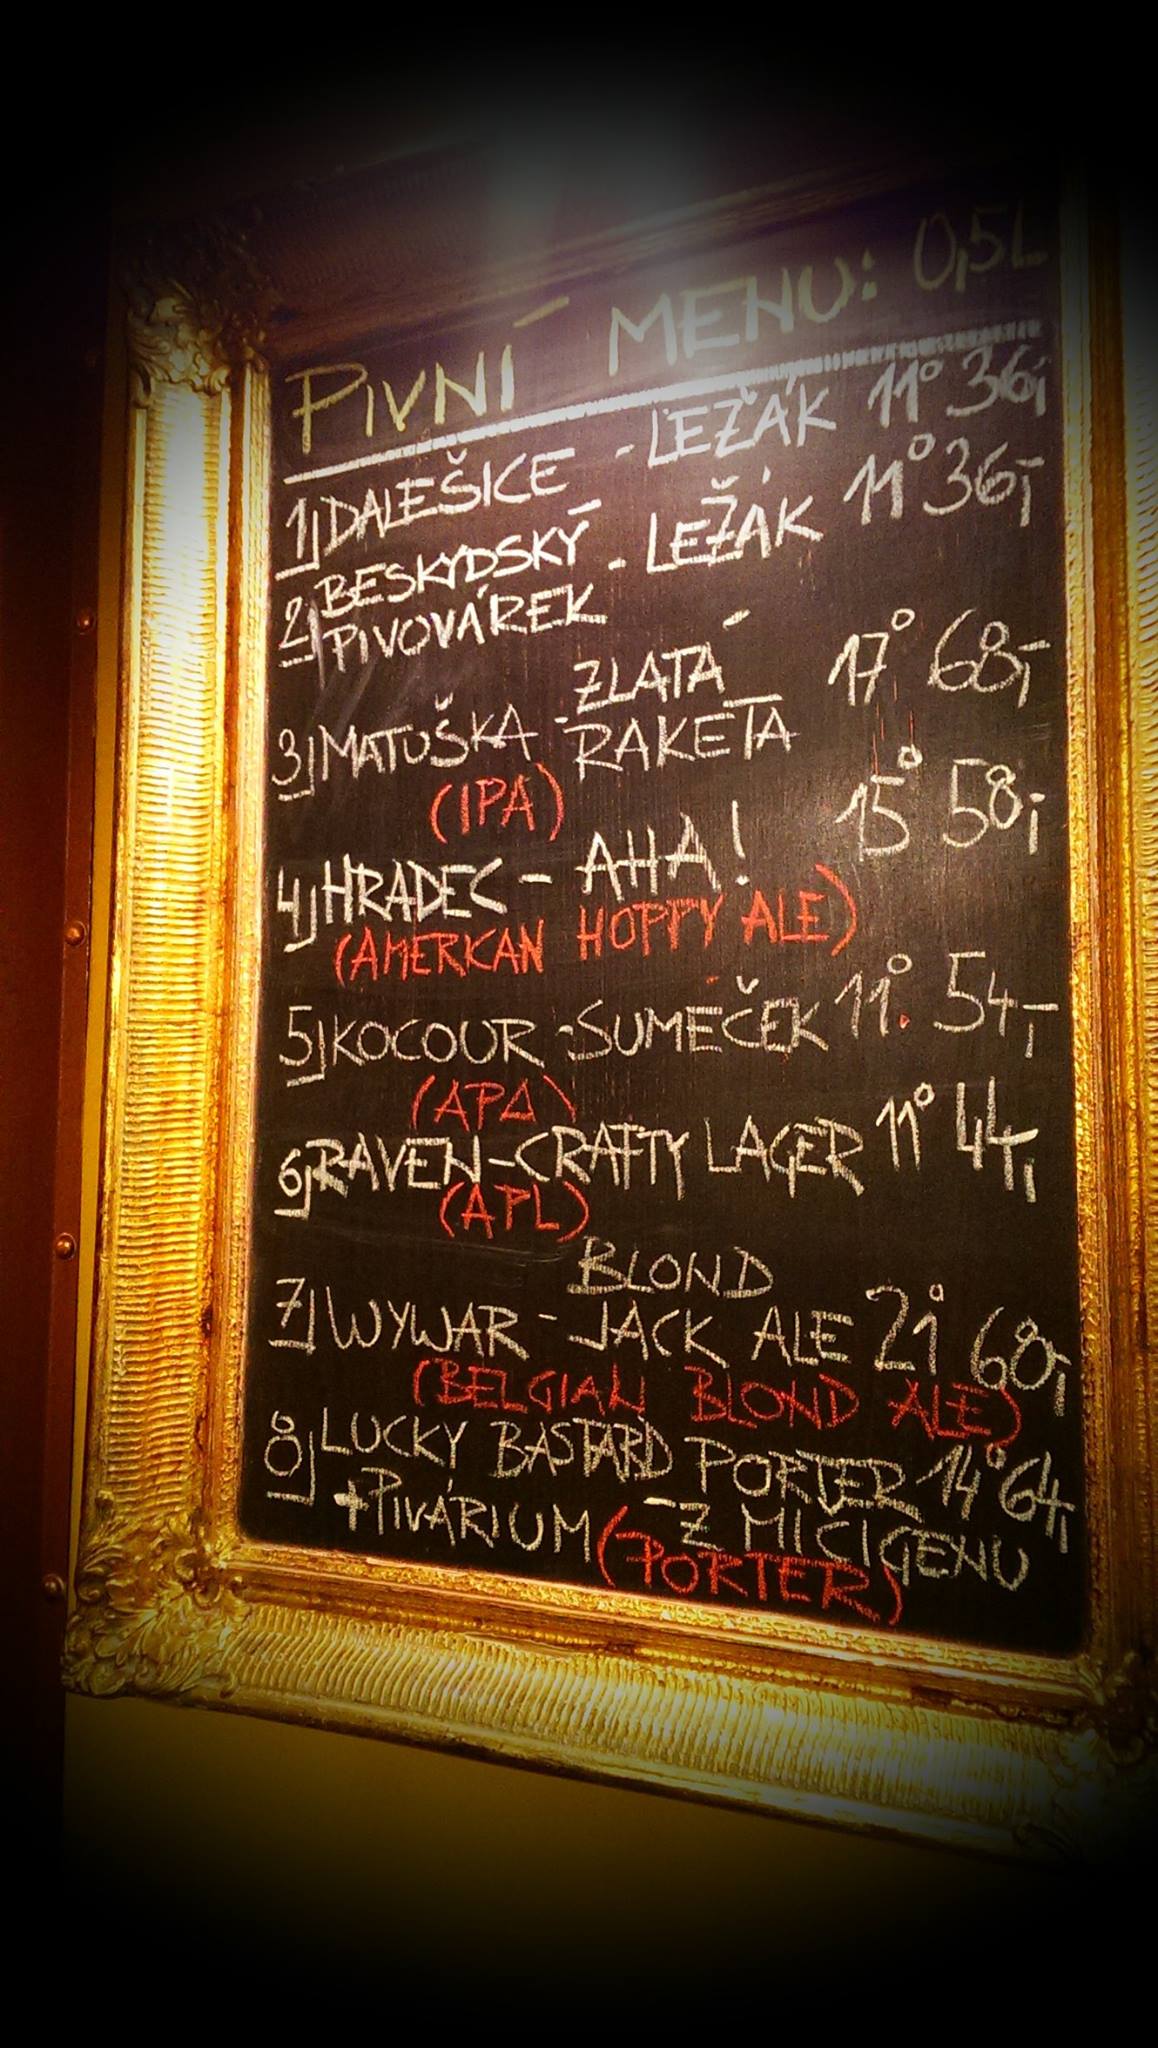 PIVNÍ MENU: 0,5L
1) DALEŠICE - LEŽÁK 11° 36,-
2) BESKYDSKÝ - LEŽÁK 11° 36,-
PIVOVÁREK
ZLATÁ 17° 68,-
3) MATUŠKA - RAKETA
(IPA)
4) HRADEC - AHA! 15° 58,-
(AMERICAN HOPPY ALE)
5) KOCOUR - SUMEČEK 11° 54,-
(APA)
6) RAVEN - CRAFTY LAGER 11° 44,-
(APL)
BLOND
7) WYWAR - JACK ALE 21° 60,-
(BELGIAN BLOND ALE)
8) LUCKY BASTARD PORTER 14° 64,-
+ PIVÁRIUM - Z MICIGENU
(PORTER)